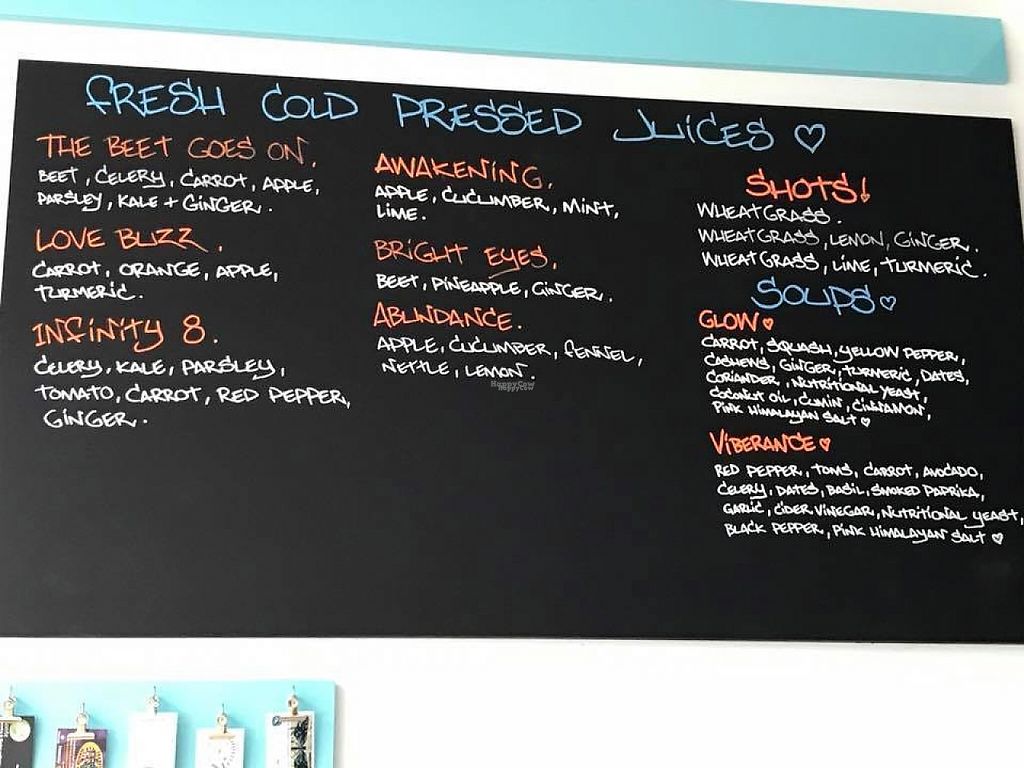 FRESH COLD PRESSED JUICES ♡
THE BEET GOES ON.
BEET, CELERY, CARROT, APPLE,
PARSLEY, KALE + GINGER.
LOVE BUZZ.
CARROT, ORANGE, APPLE,
TURMERIC.
INFINITY 8.
CELERY, KALE, PARSLEY,
TOMATO, CARROT, RED PEPPER,
GINGER.
AWAKENING.
APPLE, CUCUMBER, MINT,
LIME.
BRIGHT EYES.
BEET, PINEAPPLE, GINGER.
ABUNDANCE.
APPLE, CUCUMBER, FENNEL,
NETTLE, LEMON.
SHOTS!
WHEATGRASS.
WHEATGRASS, LEMON, GINGER.
WHEATGRASS, LIME, TURMERIC.
SOUPS ♡
GLOW ♡
CARROT, SQUASH, YELLOW PEPPER,
CASHEWS, GINGER, TURMERIC, DATES,
CORIANDER, NUTRITIONAL YEAST,
COCONUT OIL, CUMIN, CINNAMON,
PINK HIMALAYAN SALT ♡
VIBERANCE ♡
RED PEPPER, TOMS, CARROT, AVOCADO,
CELERY, DATES, BASIL, SMOKED PAPRIKA,
GARLIC, CIDER VINEGAR, NUTRITIONAL YEAST,
BLACK PEPPER, PINK HIMALAYAN SALT ♡
HappyCow
HappyCow